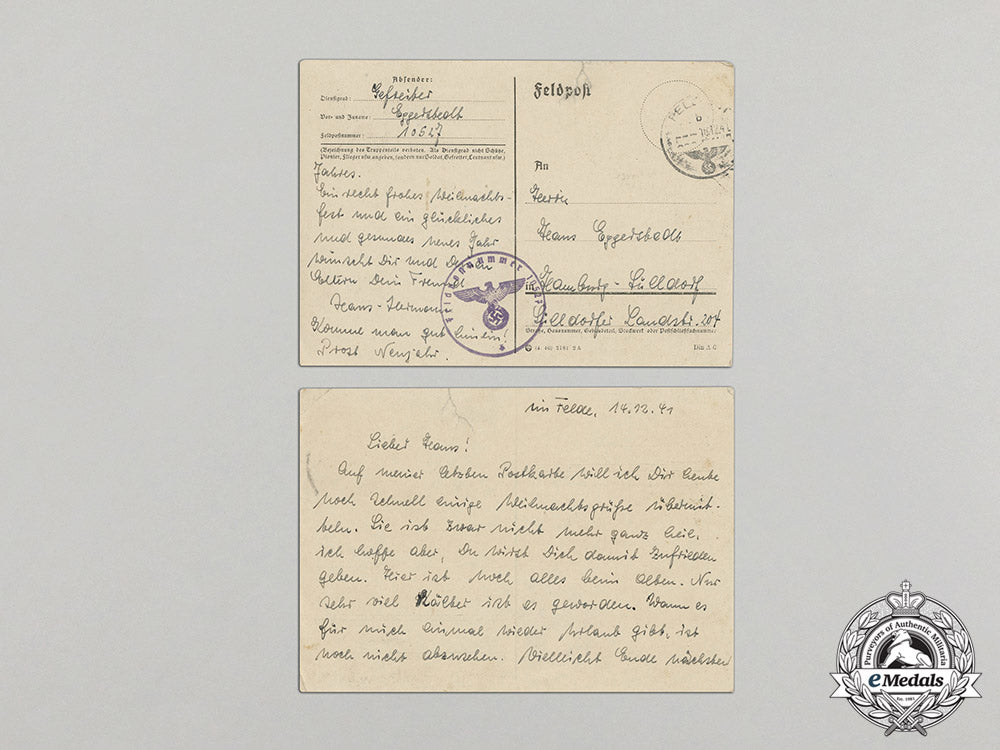 Absender:
Dienstgrad: Gefreiter
Vor- und Zuname: Eggerstedt
Feldpostnummer: 10527
(Bezeichnung des Truppenteils verboten. Als Dienstgrad nicht Schütze,
Pionier, Flieger usw. angeben, sondern nur Soldat, Gefreiter, Leutnant usw.)
Jahres.
Ein recht frohes Weihnachts-
fest und ein glückliches
und gesundes neues Jahr
wünscht Dir und Deinen
Eltern Dein Freund
Hans-Hermann
Komme man gut hinein!
Prost Neujahr.
Feldpostnummer 10527
Feldpost
b
An
Herrn
Hans Eggerstedt
in Hamburg-Sülldorf
Sülldorfer Landstr. 204
Straße, Hausnummer, Gebäudeteil, Stockwerk oder Postschließfachnummer
Din A 6
im Felde, 14.12.41
Lieber Hans!
Auf meiner letzten Postkarte will ich Dir heute
noch schnell einige Weihnachtsgrüße übermit-
teln. Sie ist zwar nicht mehr ganz heil,
ich hoffe aber, Du wirst Dich damit zufrieden
geben. Hier ist noch alles beim alten. Nur
sehr viel Kälter ist es geworden. Wann es
für mich einmal wieder Urlaub gibt, ist
noch nicht abzusehen. Vielleicht Ende nächsten
Purveyors of Authentic Militaria
eMedals
Est. 1981